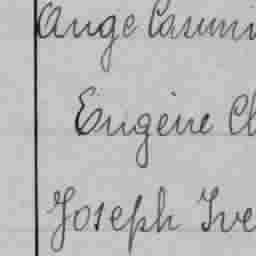 Ange Casimi
Eugène Cl
Joseph Yve